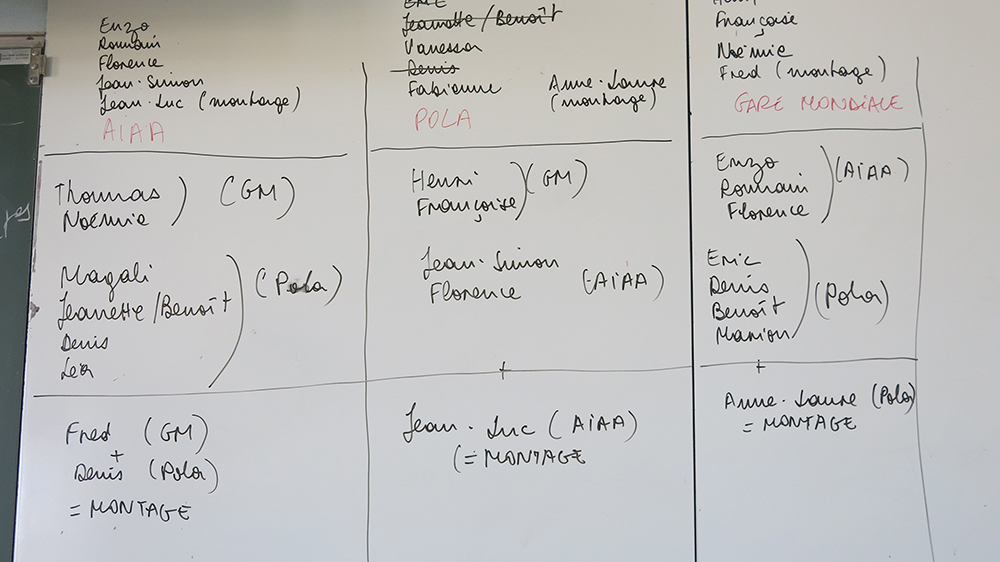 Enzo
Romain
Florence
Jean-Simon
Jean-Luc (montage)
AiAA
Thomas
Noémie
(GM)
Magali
Jeanette/Benoît
Denis
Léa
(Pola)
Fred (GM)
+
Denis (Pola)
= MONTAGE
Jeanette/Benoît
Vanessa
Denis
Fabienne
Anne-Laure
(montage)
POLA
Henri
Françoise
(GM)
Jean-Simon
Florence
(AiAA)
+
Jean-Luc (AiAA)
(= MONTAGE
Françoise
Noémie
Fred (montage)
GARE MONDIALE
Enzo
Romain
Florence
(AiAA)
Eric
Denis
Benoît
Marion
(Pola)
+
Anne-Laure (Pola)
= MONTAGE